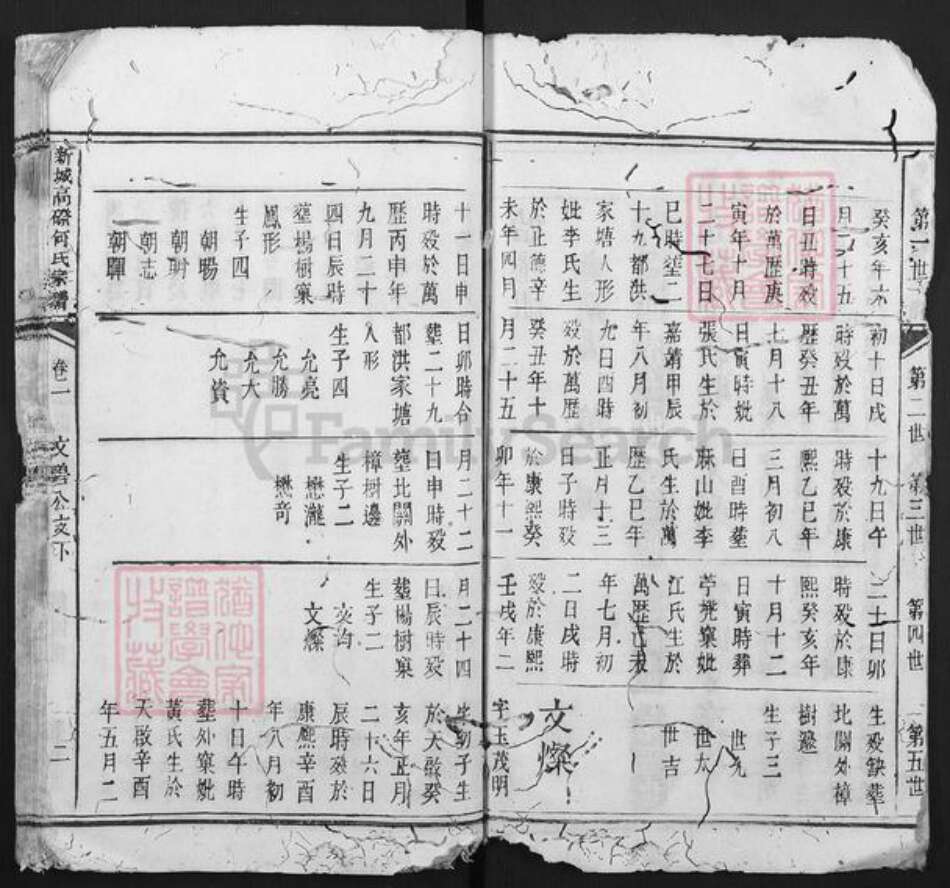 第一世
癸亥年六
月二十五
日丑時殁
於萬歷庚
寅年十月
二十七日
巳時塋二
十九都洪
家塘人形
妣李氏生
於正德辛
未年四月
十一日申
時殁於萬
歷丙申年
九月二十
四日辰時
塋楊樹窠
鳳形
生子四
朝暘
朝
朝志
朝暉
第二世
初十日戌
時殁於萬
歷癸丑年
七月十八
日寅時妣
張氏生於
嘉靖甲辰
年八月初
九日酉時
殁於萬歷
癸丑年十
月二十五
日卯時合
塟二十九
都洪家塘
人形
生子四
允亮
允勝
允大
允資
第三世
十九日午
時殁於康
熙乙巳年
三月初八
日酉時塟
麻山妣李
氏生於萬
歷乙巳年
正月十三
日子時殁
於康熙癸
卯年十一
月二十二
日申時殁
塋北關外
樟樹邊
生子二
懋瀧
懋奇
第四世
二十日卯
時殁於康
熙癸亥年
十月十二
日寅時葬
苧凳窠妣
江氏生於
萬歷丁未
年七月初
二日戌時
殁於康熙
壬戌年二
月二十四
日辰時殁
塟楊樹窠
生子二
文
文燦
第五世
生殁缺塟
北關外樟
樹邊
生子三
世九
世大
世吉
文燦
字玉茂明
生朝子生
於天啟癸
亥年正月
二十六日
辰時殁於
康熙辛酉
年八月初
十日午時
塟外窠妣
黃氏生於
天啟辛酉
年五月二
新城高磜何氏宗譜
卷二
文碧公文下
二
FamilySearch